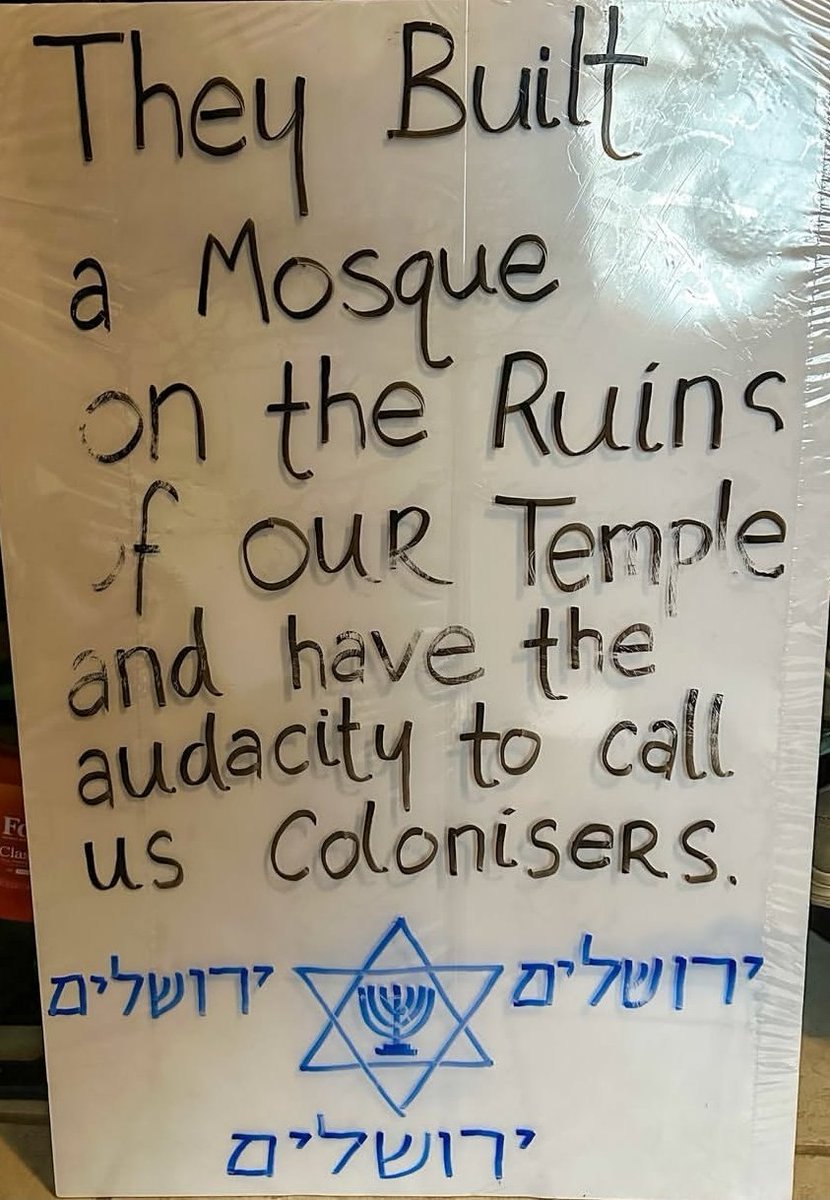 They Built
a Mosque
on the Ruins
of OUR Temple
and have the
audacity to call
us Colonisers.
ירושלים ירושלים
ירושלים